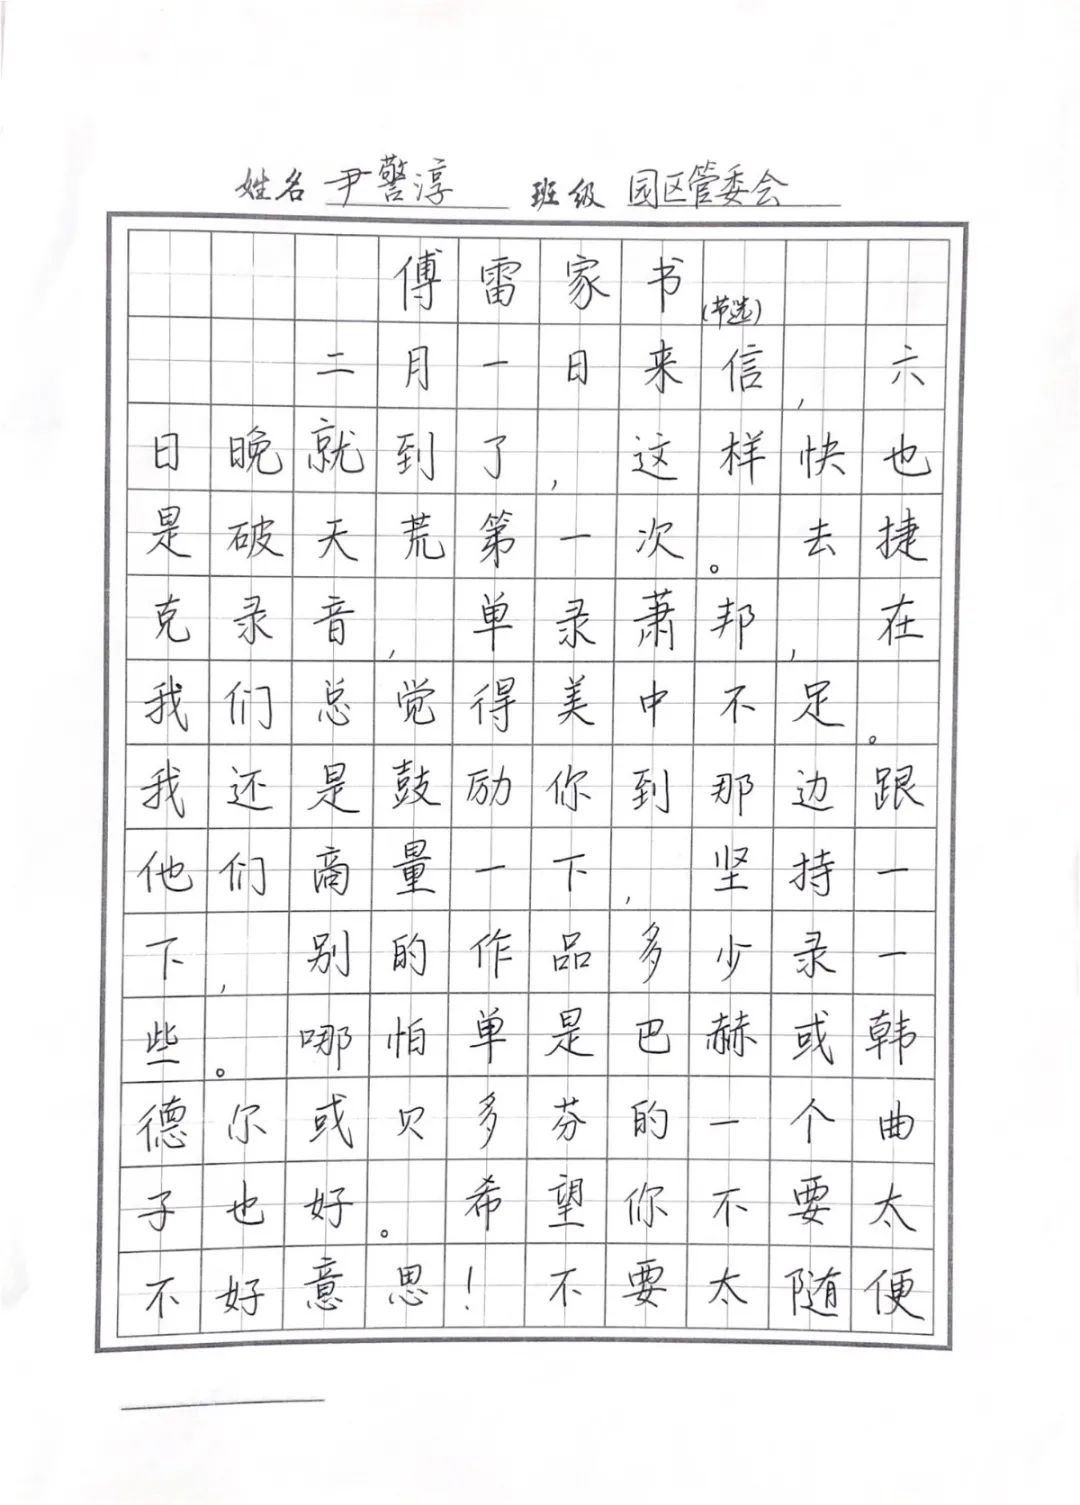 姓名 尹警淳 班级 园区管委会
傅雷家书(节选)
二月一日来信,六
日晚就到了,这样快也
是破天荒第一次。去捷
克录音,单录萧邦,在
我们总觉得美中不足。
我还是鼓励你到那边跟
他们商量一下,坚持一
下,别的作品多少录一
些。哪怕单是巴赫或韩
德尔或贝多芬的一个曲
子也好。希望你不要太
不好意思!不要太随便